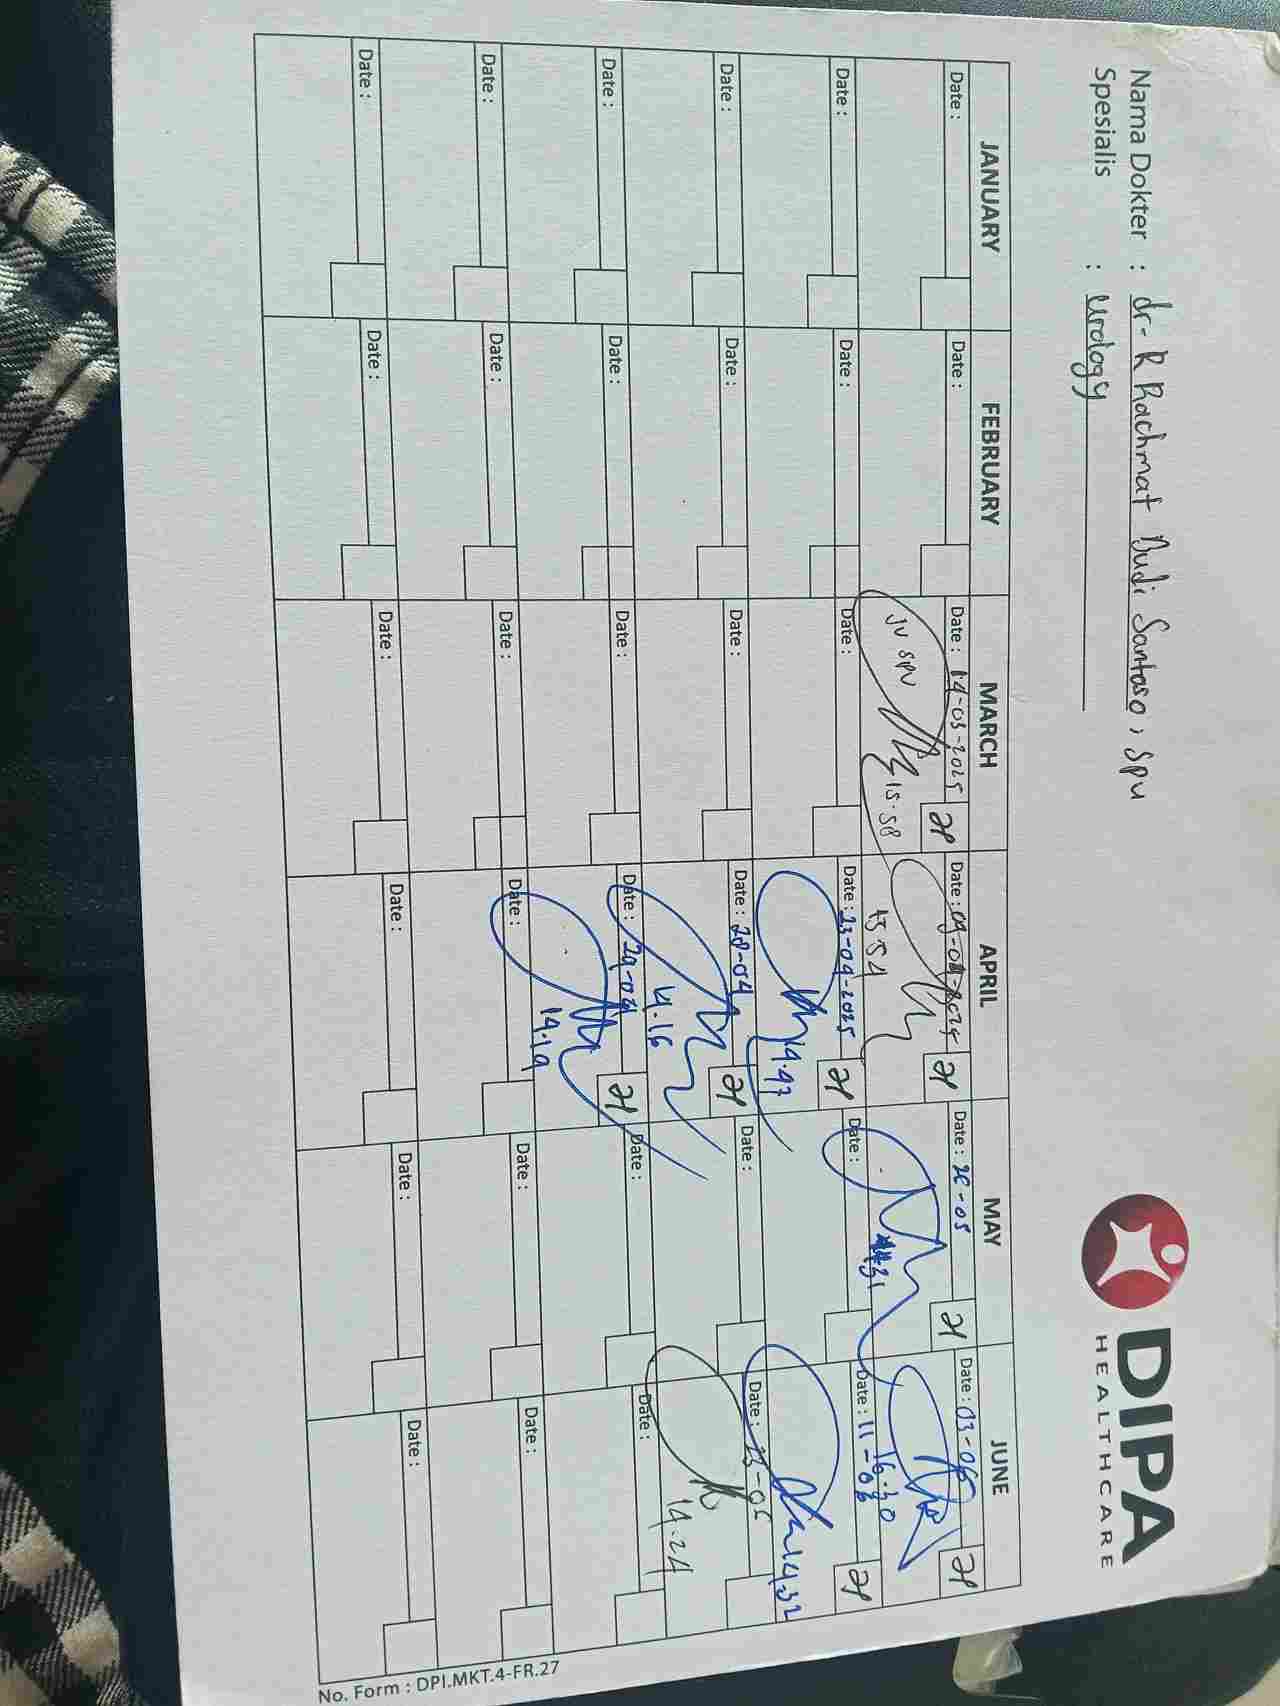 DIPA
HEALTHCARE
Nama Dokter : dr. R Rachmat Budi Santoso, SpU
Spesialis : Urology
JANUARY FEBRUARY MARCH APRIL MAY JUNE
Date : Date : Date : 14-03-2025 Date : 09-04-2025 Date : 26-05 Date : 03-06
JV SPV 15.58 13.54 14.31 16.30
Date : Date : Date : Date : 23-04-2025 Date : Date : 11-06
14.47 14.32
Date : Date : Date : Date : 28-04 Date : Date : 23-06
14.16 14.24
Date : Date : Date : Date : 29-04 Date : Date :
14.19
Date : Date : Date : Date : Date : Date :
Date : Date : Date : Date : Date : Date :
No. Form : DPI.MKT.4-FR.27